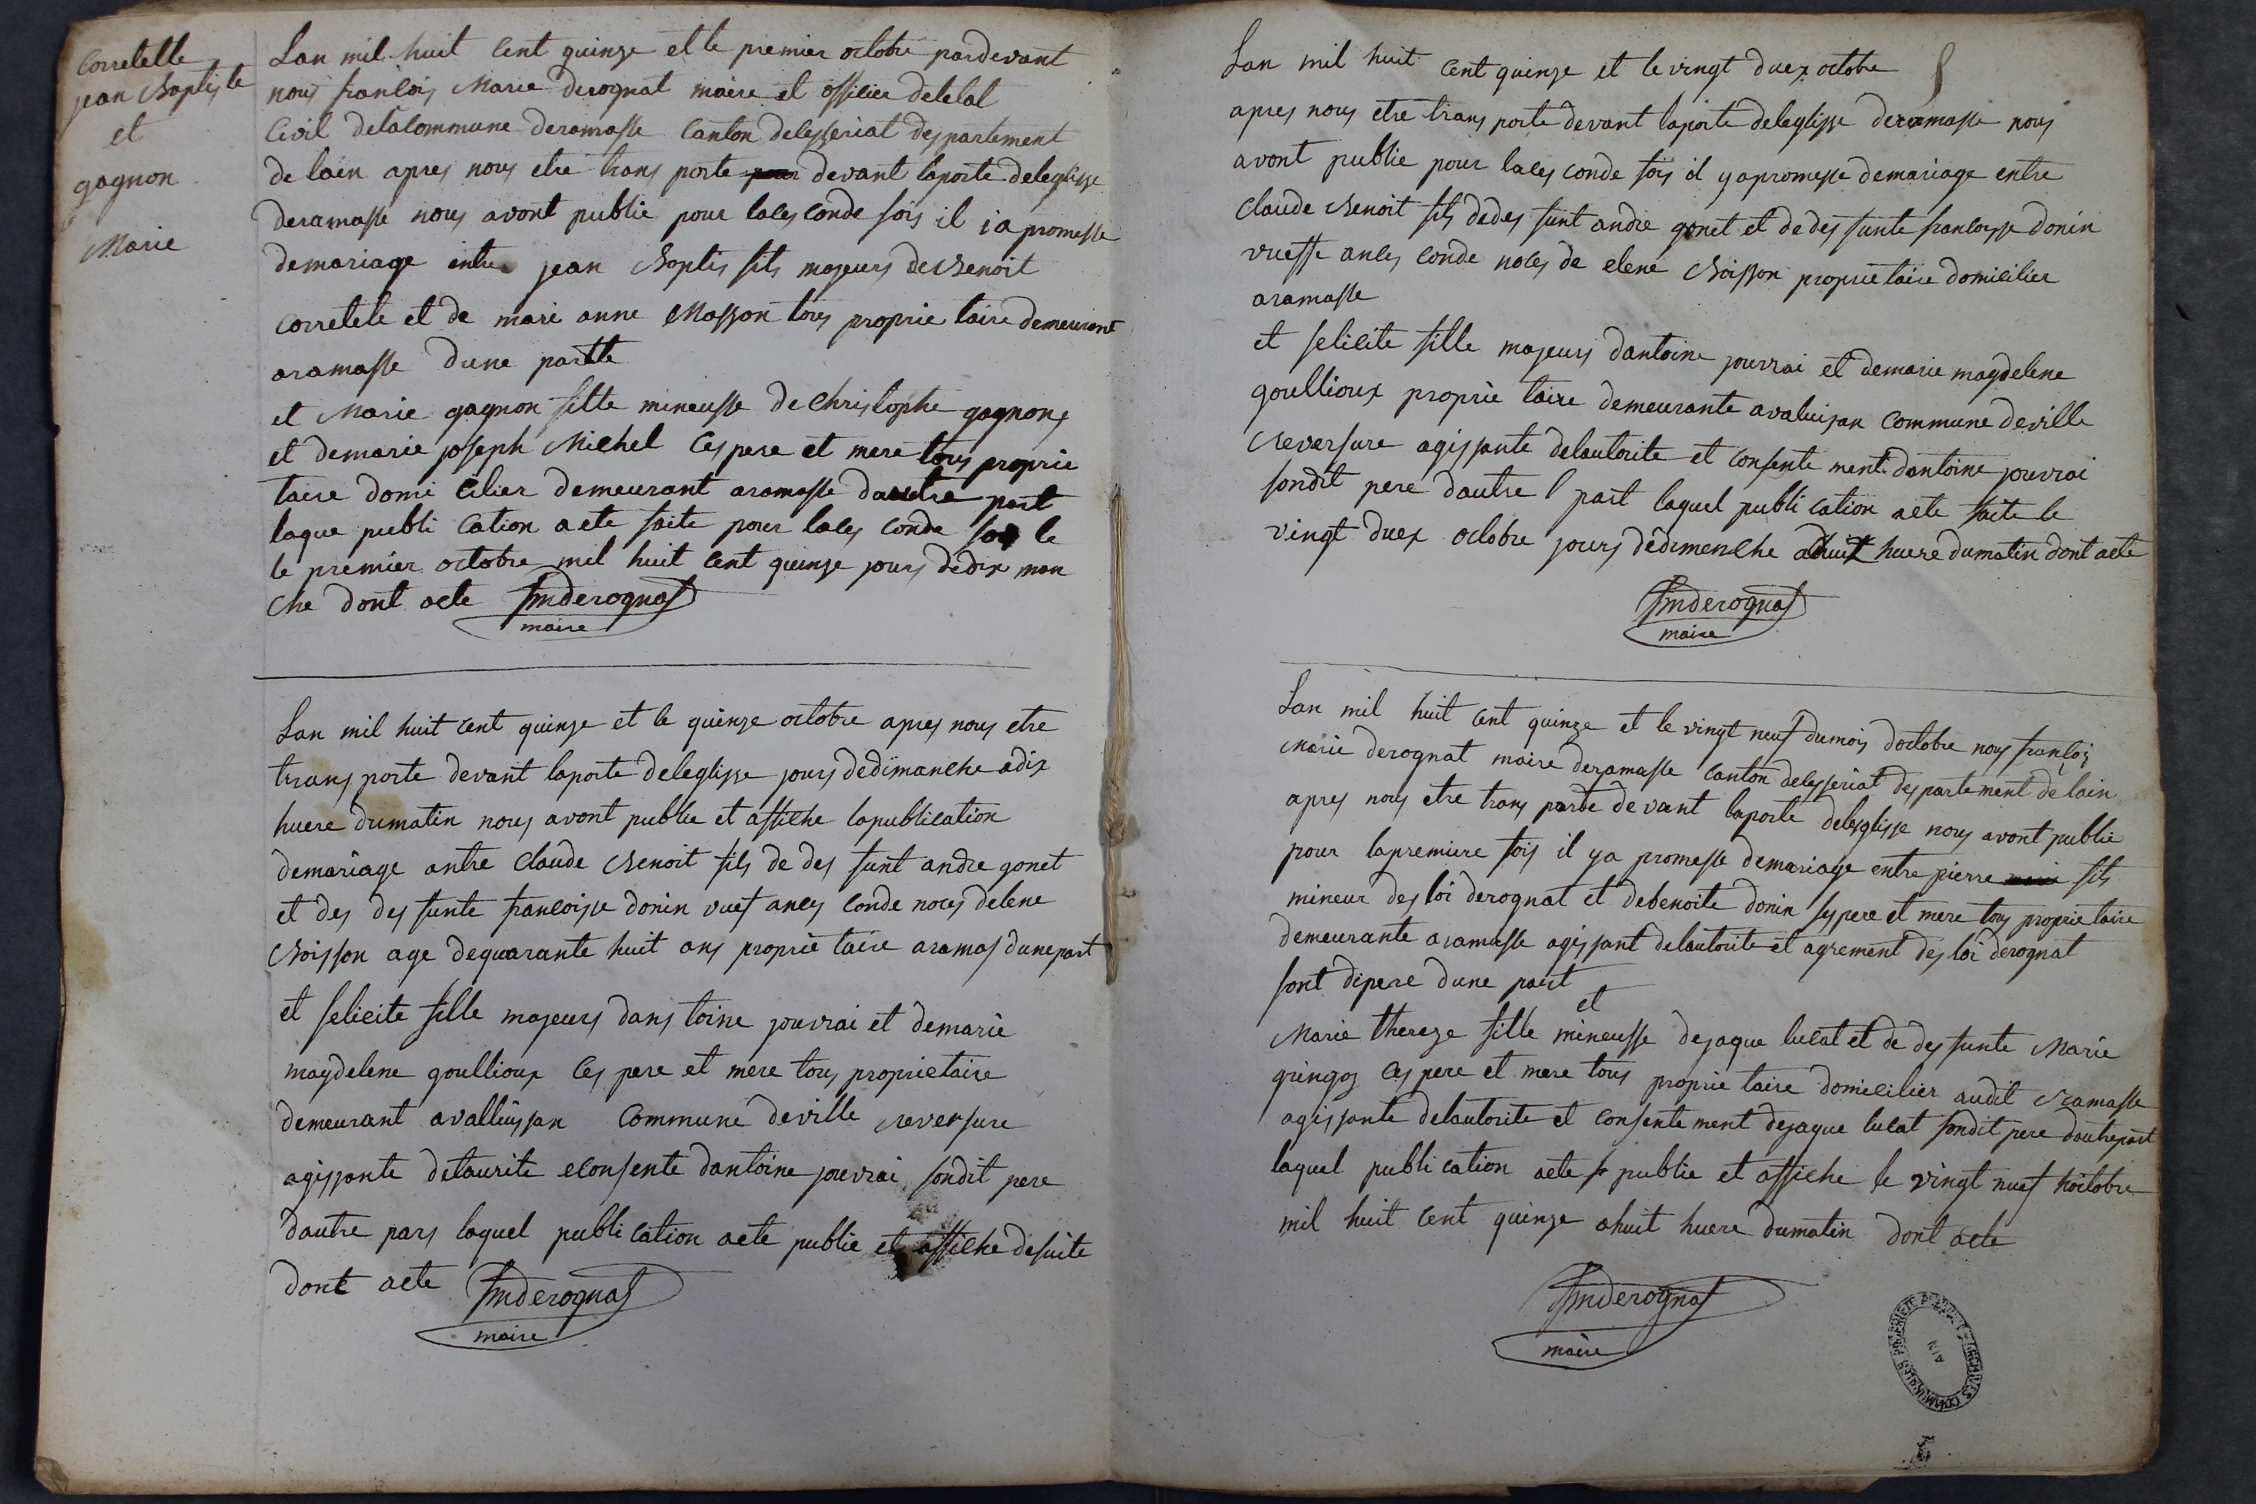 Correlelle
jean Baptiste
et
gagnon
Marie
Lan mil huit Cent quinze et le premier octobre pardevant
nous francois Marie derognat maire et officier deletat
Civil delacommune deramasse Canton deleyseriat despartement
de lain apres nous etre trans porte pour devant laporte deleglisse
deramasse nous avont publie pour laces conde fois il ia promesse
demariage entre jean Baptis fils majeurs deBenoit
Correlele et de marie anne Masson tous proprie taire demeurant
aramasse dune partte
et Marie gagnon fille mineusse de Christophe gagnons
et demarie joseph Michel Ces pere et mere tous proprie
taire domi cilier demeurant aramasse dautre part
laque publi cation aete faite pour laces conde fois le
le premier octobre mil huit Cent quinze jours dedix man
che dont acte fmderognat
maire
Lan mil huit Cent quinze et le quinze octobre apres nous etre
trans porte devant laporte deleglisse jours dedimanche adix
huere dumatin nous avont publie et affiche lapublication
demariage antre Claude Benoit fils de des funt andre gonet
et des des funte francoisse donin vuef ances conde noces delene
Boisson age dequarante huit ans proprie taire aramas dunepart
et felicite fille majeurs dans toine jouvrai et demarie
magdelene goullioux Ces pere et mere tous proprietaire
demeurant avalluissan Commune deville reversure
agissante delaurite econsente dantoine jouvrai sondit pere
dautre pars laquel publi cation aete publie et affiche desuite
dont acte fmderognat
maire
Lan mil huit Cent quinze et le vingt duex octobre
apres nous etre trans porte devant laporte deleglisse deramasse nous
avont publie pour laces conde fois il yapromesse demariage entre
Claude Benoit fils dedes funt andre gonet et de des funte francoisse donin
vuesse ances conde noces de elene Boisson proprietaire domicilier
aramasse
et felicite fille majeurs dantoine jouvrai et demarie magdelene
goullioux proprie taire demeurante avaluisan Commune deville
Reversure agissante delautorite et consente ment dantoine jouvrai
sondit pere dautre part laquel publi cation aete faite le
vingt duex octobre jours dedimenche ahuit huere dumatin dont acte
fmderognat
maire
Lan mil huit Cent quinze et le vingt neuf dumois doctobre nous francois
Marie derognat maire deramasse Canton deleyseriat despartement de lain
apres nous etre trans porte devant laporte deleglisse nous avont publie
pour lapremiere fois il ya promesse demariage entre pierre fils
mineur desloi derognat et debenoite donin ses pere et mere tous proprie taire
demeurante aramasse agissant delautorite et agrement desloi derognat
sont dipere dune part
et
Marie thereze fille mineusse dejaque lucat et de des funte Marie
gringoz Ces pere et mere tous proprie taire domicilier audit Ramasse
agissante delautorite et consente ment dejaque lucat sondit pere dautrepart
laquel publi cation aete publie et affiche le vingt nuef hoctobre
mil huit Cent quinze ahuit huere dumatin dont acte
fmderognat
maire
AIN